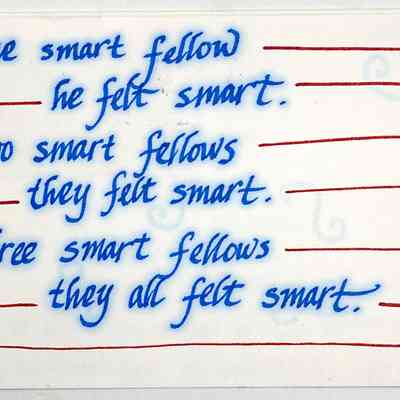 smart fellow
he felt smart.
smart fellows
they felt smart.
smart fellows
they all felt smart.